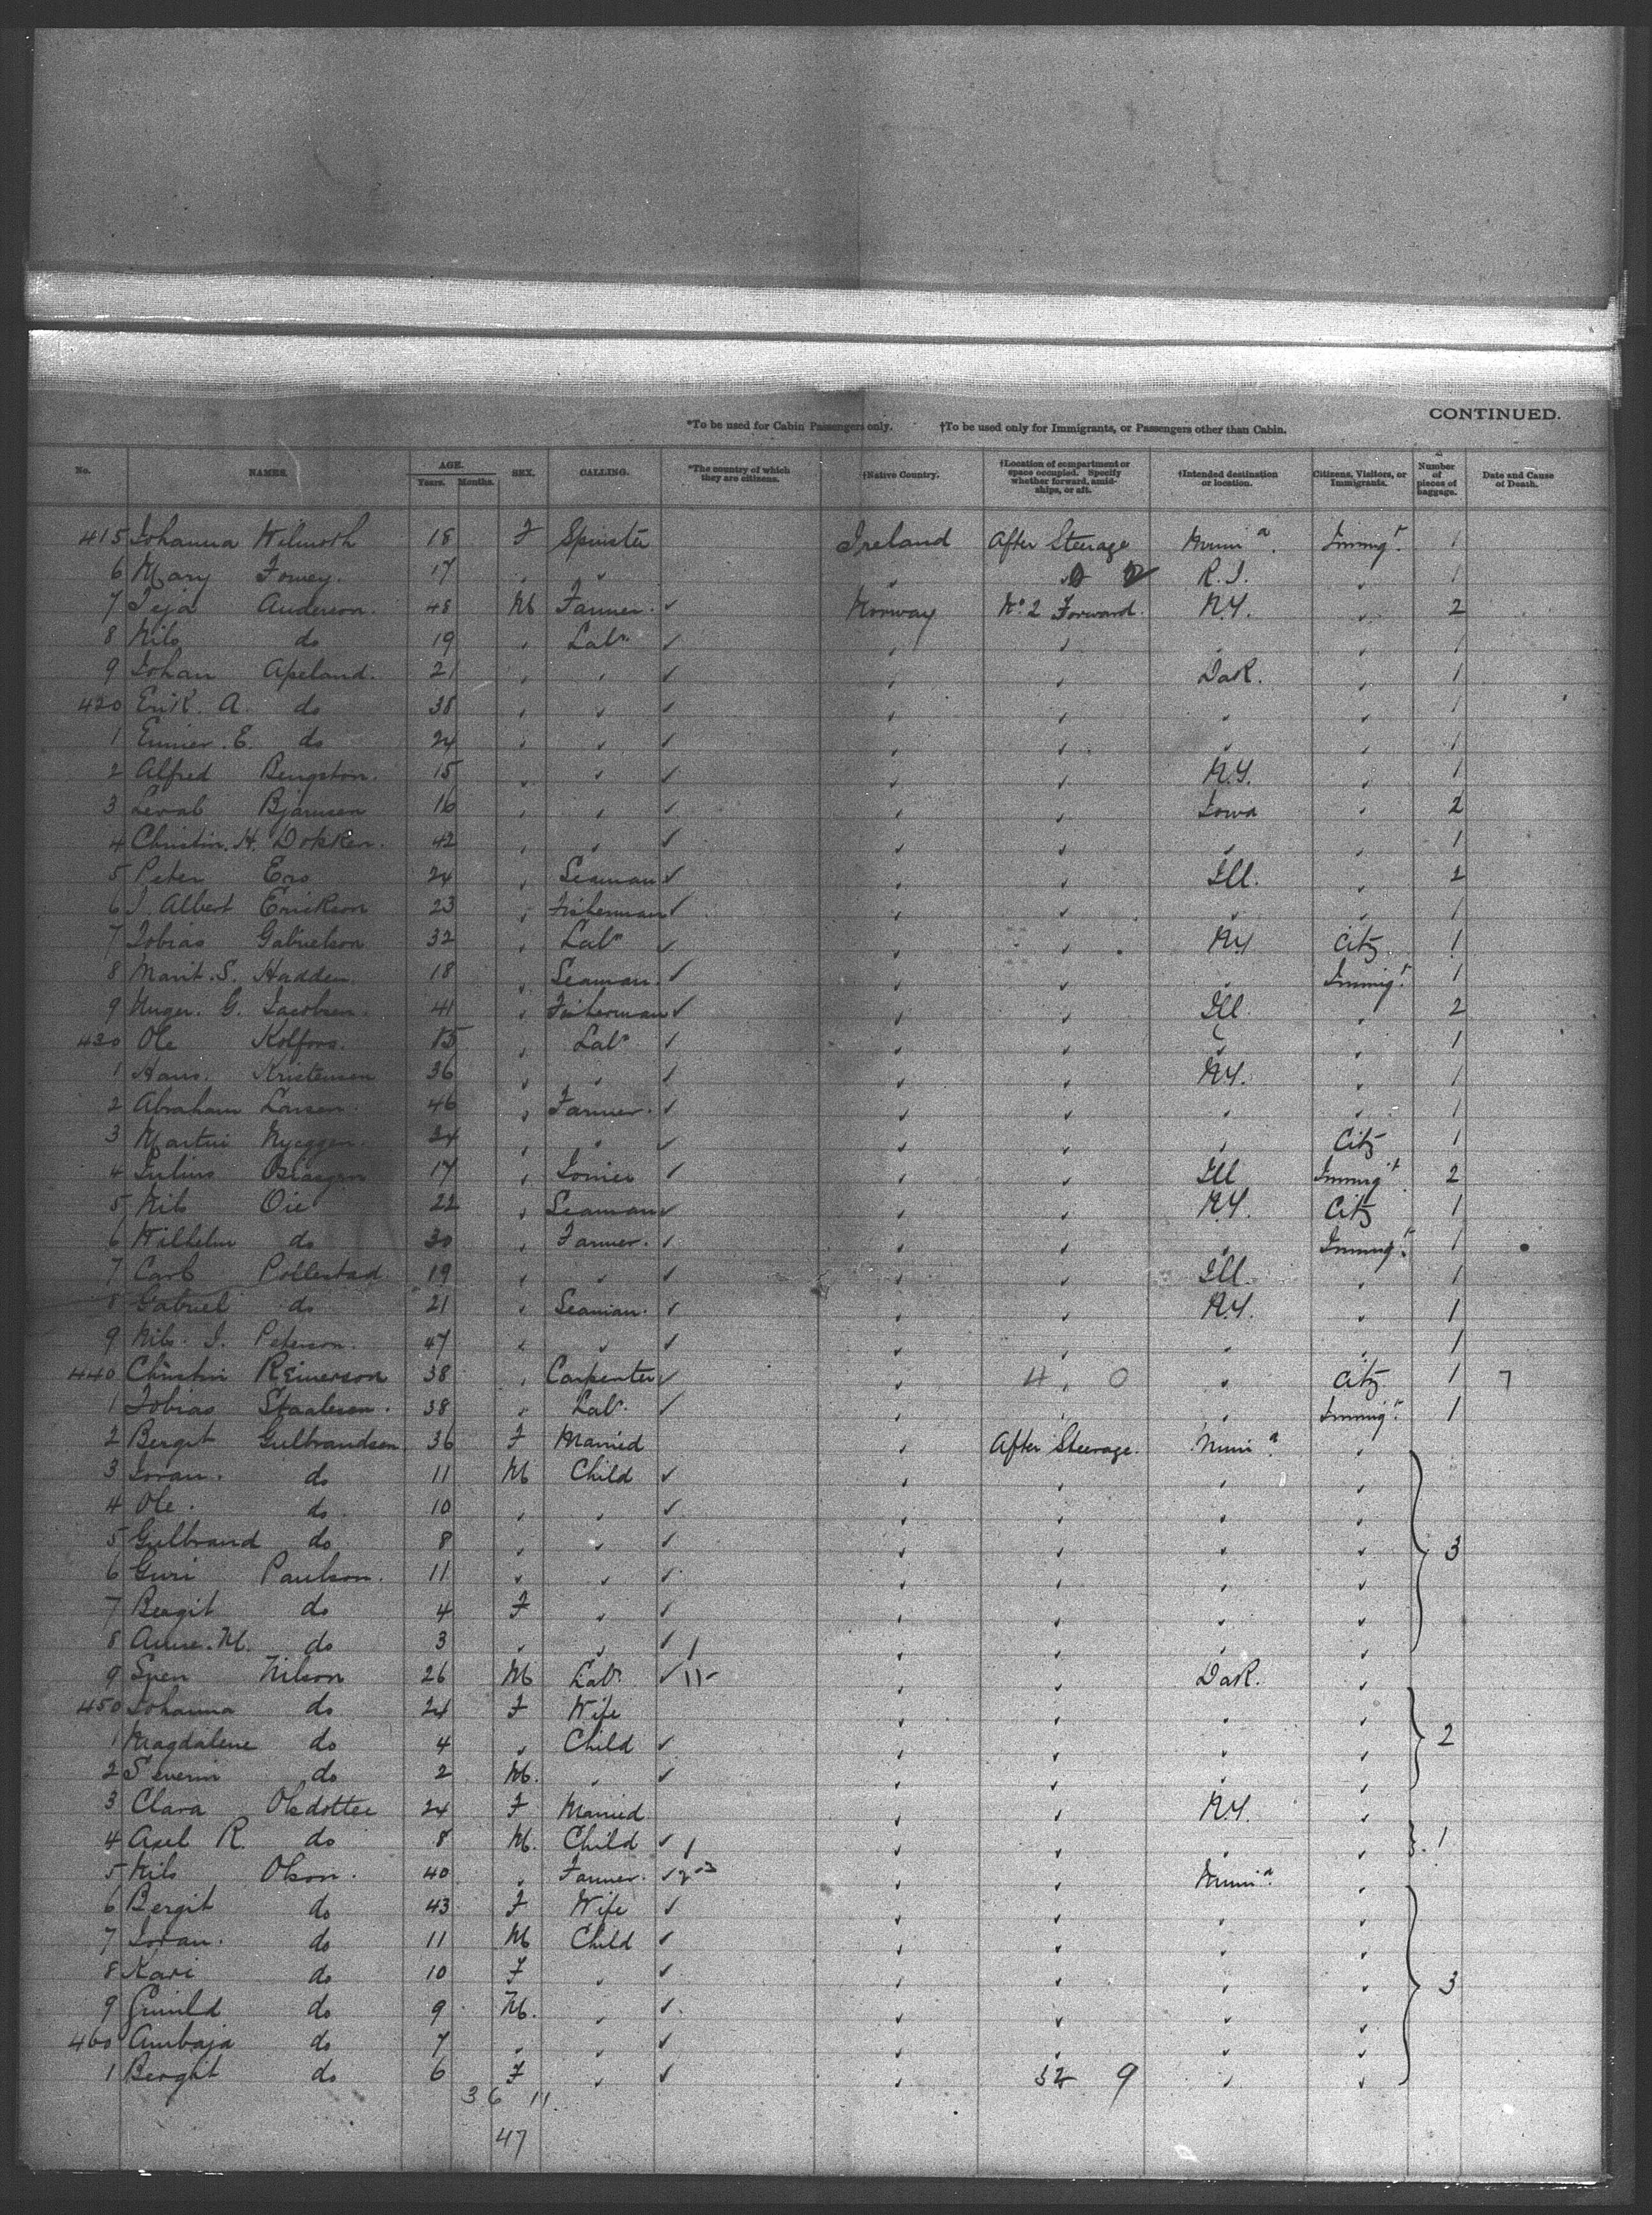 CONTINUED.
*To be used for Cabin Passengers only. †To be used only for Immigrants, or Passengers other than Cabin.
No. NAMES. AGE. Years. Months. SEX. CALLING. *The country of which they are citizens. †Native Country. †Location of compartment or space occupied. Specify whether forward, amidships, or aft. †Intended destination or location. Citizens, Visitors, or Immigrants. Number of pieces of baggage. Date and Cause of Death.
415 Johanna Wilmoth 18 F Spinster Ireland After Steerage Minn a. Immigt. 1
6 Mary 17 " " R.I. " 1
7 Teja Anderson. 48 M Farmer. ✓ Norway No. 2 Forward. N.Y. " 2
8 Nils do 19 " Labr ✓ " " " " 1
9 Johan Apeland. 21 " " ✓ " " Dak. " 1
420 Erik. A. do 38 " " ✓ " " " " 1
1 E. do 24 " " ✓ " " " " 1
2 Alfred Bengston. 15 " " ✓ " " N.Y. " 1
3 Bjarnsen 16 " " ✓ " " Iowa " 2
4 Christin. H. Dokken. 42 " " ✓ " " " " 1
5 Peter 24 " Seaman ✓ " " Ill. " 2
6 J. Albert Erickson 23 " Fisherman ✓ " " " " 1
7 Tobias Gabrielson 32 " Labr ✓ " " N.Y. City 1
8 Marit. S. Hadden. 18 " Seaman. ✓ " " " Immigt. 1
9 G. Jacobsen. 41 " Fisherman ✓ " " Ill. " 2
430 Ole Kolfoss. 15 " Labr ✓ " " " " 1
1 Hans. Kristensen 36 " " ✓ " " N.Y. " 1
2 Abraham Larsen. 46 " Farmer. ✓ " " " " 1
3 Martin 24 " " ✓ " " " City 1
4 Julius 17 " Joiner ✓ " " Ill Immigt. 2
5 Nils Oie 22 " Seaman ✓ " " N.Y. City 1
6 Wilhelm do 30 " Farmer. ✓ " " " Immigt. 1
7 Carl Pollestad 19 " " ✓ " " Ill. " 1
8 Gabriel do 21 " Seaman. ✓ " " N.Y. " 1
9 Nils. J. Peterson. 47 " " ✓ " " " " 1
440 Christin Reinerson 38 " Carpenter ✓ " 4 " 0 " City 1 7
1 Tobias Staalesen. 38 " Labr. ✓ " " " Immigt. 1
2 Bergit Gulbrandsen. 36 F Married " After Steerage. Minn a. "
3 do 11 M Child ✓ " " " "
4 Ole. do. 10 " " ✓ " " " "
5 Gulbrand do 8 " " ✓ " " " " 3
6 Guri Paulson. 11 " " ✓ " " " "
7 Bergit do 4 F " ✓ " " " "
8 Anne. M. do 3 " " ✓ " " " "
9 Sven Nilson 26 M Labr. ✓ 11- " " Dak. "
450 Johanna do 24 F Wife " " " "
1 Magdalene do 4 " Child ✓ " " " " 2
2 Severin do 2 M. " ✓ " " " "
3 Clara Olsdotter 24 F Married " " N.Y. "
4 Axel R. do 8 M. Child ✓ " " " " 1
5 Nils Olson. 40 " Farmer. ✓ " " Minn a. "
6 Bergit do 43 F Wife ✓ " " " "
7 do 11 M Child ✓ " " " "
8 Kari do 10 F " ✓ " " " " 3
9 Gunild do 9 M. " ✓ " " " "
460 Ambaja do 7 " " ✓ " " " "
1 Bergit do 6 F " ✓ " 52 9 " "
36 11.
47